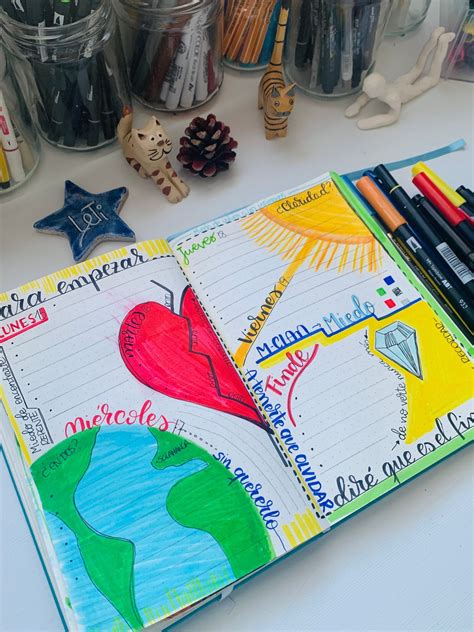 LeTi
Para empezar
LUNES 1
Miedo de encontrarte
Martes
Miércoles 17
¿EN DOS?
SALAMANCA
sin quererlo
Jueves 18
¿Claridad?
Viernes 19
Miedo
Finde
A tenerte que olvidar
de no verte nunca
diré que es el fin